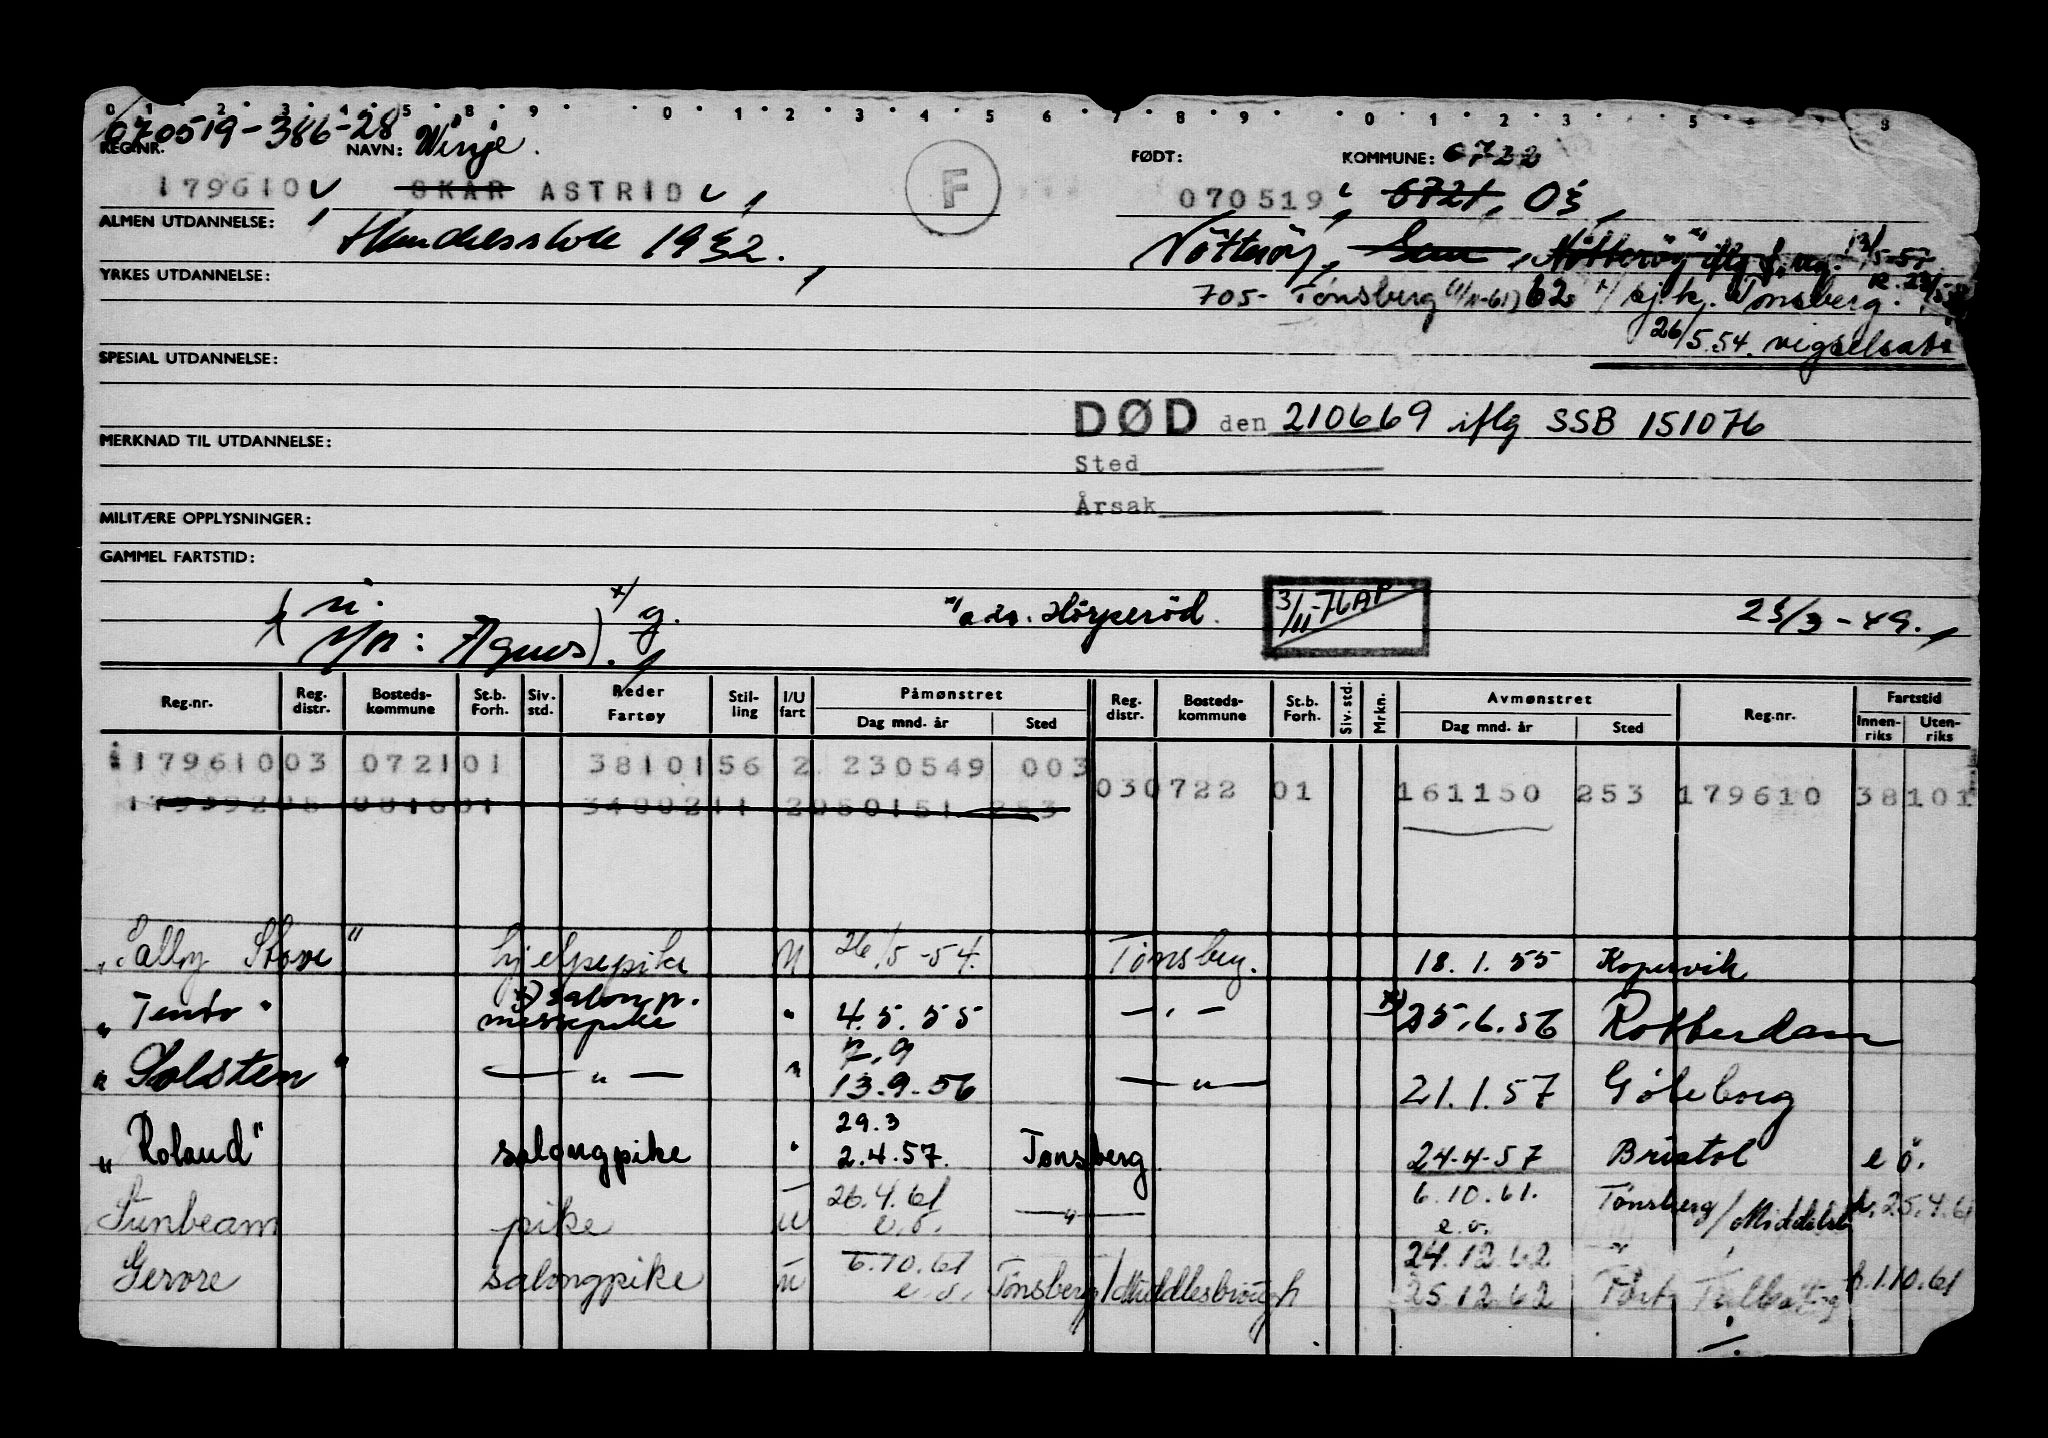 0 1 2 3 4 5 8 9 0 1 2 3 4 5 6 7 8 9 0 1 2 3 5 9
070519-386-28 Winje.
REG.NR. NAVN: FØDT: KOMMUNE: 0722
179610 SKAR ASTRID F 070519 0721, 03,
ALMEN UTDANNELSE: Handelsskole 1932. Nötteröy, Sem, Nötteröy iflg 13/5-57
YRKES UTDANNELSE:
705- Tønsberg 62 sj.k. Tønsberg.
26/5.54. vigselsatt
SPESIAL UTDANNELSE:
DØD den 210669 iflg SSB 151076
MERKNAD TIL UTDANNELSE:
Sted
Årsak
MILITÆRE OPPLYSNINGER:
GAMMEL FARTSTID:
n. x/ g. Hörperöd. 3/11-76 AP 23/3-49.
m/n: Agnes)
Reg.nr. Reg. distr. Bosteds-kommune St.b. Forh. Siv. std. Reder Fartøy Stil-ling I/U fart Påmønstret Dag mnd. år Sted Reg. distr. Bosteds-kommune St.b. Forh. Siv. std. Mrkn. Avmønstret Dag mnd. år Sted Reg.nr. Fartstid Innen-riks Uten-riks
179610 03 0721 01 3810156 2 230549 003
030722 01 161150 253 179610 38 101
"Sally Stove" hjelpepike U 26/5-54. Tønsberg. 18.1.55 Kopervik
x) salongp.
"Tento" messepike " 4.5.55 - " - x) 25.6.56 Rotterdam
7.9
"Solsten" - " - " 13.9.56 - " - 21.1.57 Göteborg
29.3
"Roland" salongpike " 2.4.57. Tønsberg 24-4-57 Bristol e ö.
26.4.61 6.10.61. Tønsberg/Middelsb. f. 25.4.61
Sunbeam pike u e.o. - " - e.o.
6.10.61 24.12.62
Gerore salongpike u e.o. Tønsberg/Middlesbrough 25.12.62 Port Talbot f. 1.10.61